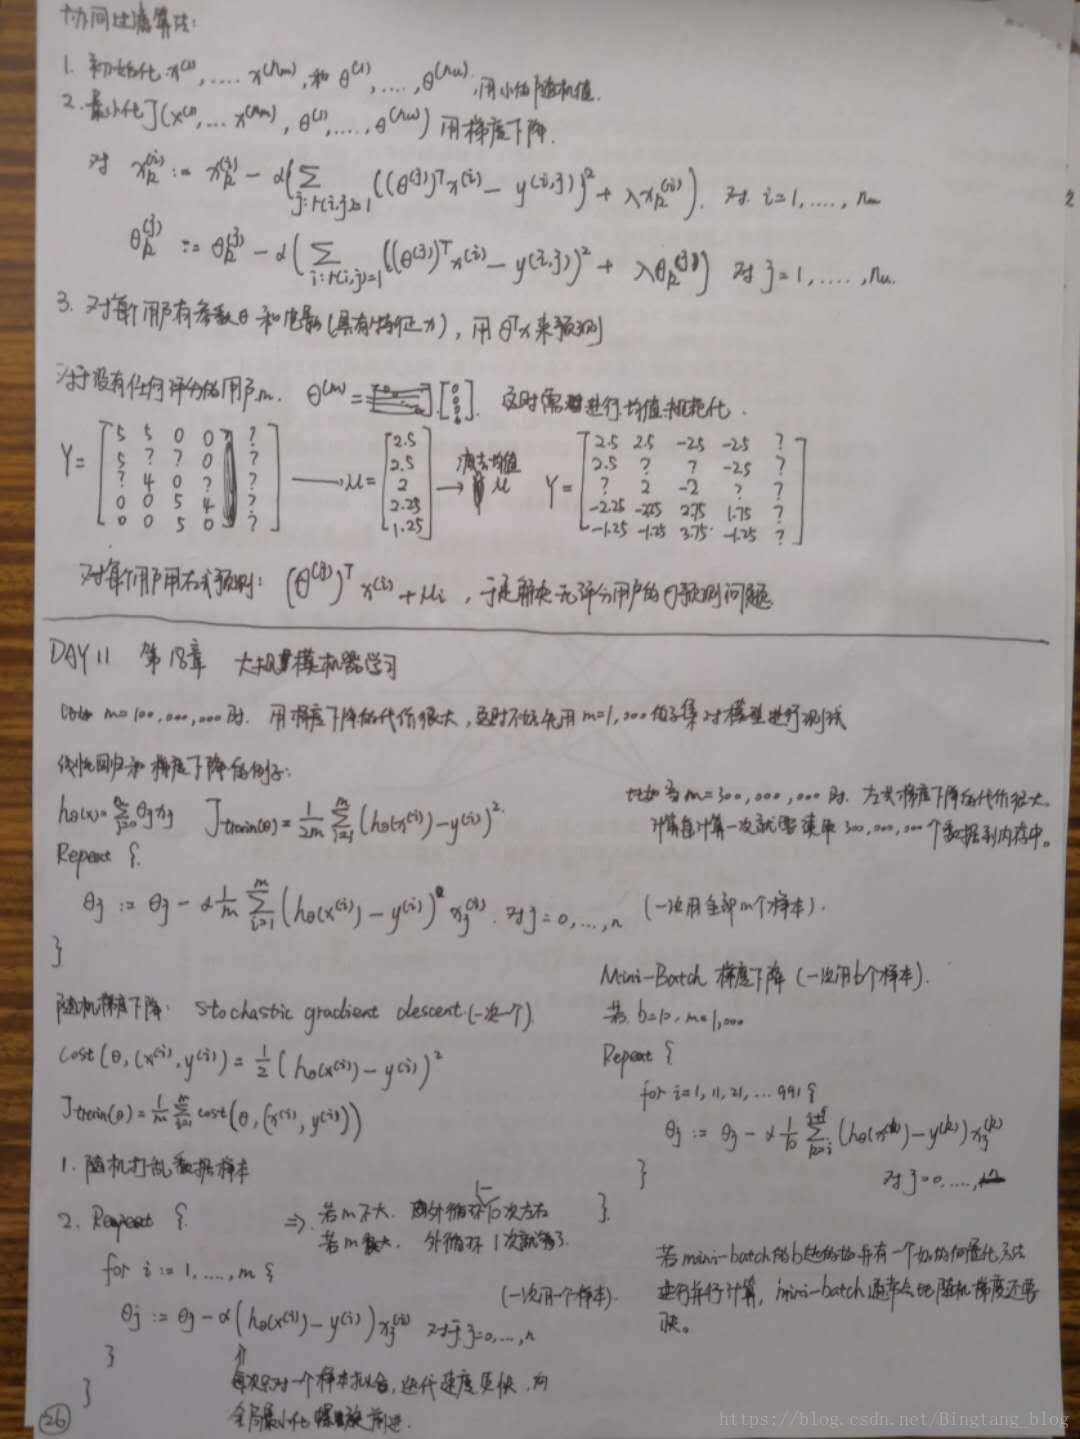 协同过滤算法:
1. 初始化 x^(1), .... x^(n_m), 和 θ^(1), ...., θ^(n_u), 用小的随机值.
2. 最小化 J(x^(1), ... x^(n_m), θ^(1), ...., θ^(n_u)) 用梯度下降.
对 x_k^(i) := x_k^(i) - α(∑_{j:r(i,j)=1} ((θ^(j))^T x^(i) - y^(i,j))^2 + λx_k^(i)). 对 i=1, ...., n_m
θ_k^(j) := θ_k^(j) - α(∑_{i:r(i,j)=1} ((θ^(j))^T x^(i) - y^(i,j))^2 + λθ_k^(j)) 对 j=1, ...., n_u.
3. 对每个用户有参数θ和电影(具有特征x), 用 θ^T x 来预测
对于没有任何评分的用户m. θ^(m) = [0 0 0 0]. 这时需要进行均值规范化.
Y = [5 5 0 0 ?
5 ? ? 0 ?
? 4 0 ? ?
0 0 5 4 ?
0 0 5 0 ?]
→ μ = [2.5
2.5
2
2.25
1.25]
→ 减去均值 μ
Y = [2.5 2.5 -2.5 -2.5 ?
2.5 ? ? -2.5 ?
? 2 -2 ? ?
-2.25 -2.25 2.75 1.75 ?
-1.25 -1.25 3.75 -1.25 ?]
对每个用户用右式预测: (θ^(j))^T x^(i) + μ_i, 于是解决无评分用户的预测问题
DAY 11 第18章 大规模机器学习
比如 m=100,000,000 时. 用梯度下降的代价很大, 这时不妨先用 m=1,000 的子集对模型进行测试
线性回归和梯度下降的例子:
h_θ(x) = ∑_{j=0}^n θ_j x_j J_train(θ) = 1/2m ∑_{i=1}^m (h_θ(x^(i)) - y^(i))^2.
比如当 m=300,000,000 时. 左式梯度下降的代价很大.
计算每计算一次就要读取 300,000,000个数据到内存中。
Repeat {
θ_j := θ_j - α 1/m ∑_{i=1}^m (h_θ(x^(i)) - y^(i)) x_j^(i). 对 j=0, ..., n (一次用全部m个样本).
}
随机梯度下降: stochastic gradient descent.(一次一个).
cost(θ, (x^(i), y^(i)) = 1/2 (h_θ(x^(i)) - y^(i))^2
J_train(θ) = 1/m ∑_{i=1}^m cost(θ, (x^(i), y^(i)))
1. 随机打乱数据样本
2. Repeat {
⇒. 若m不大. 外循环 1-10次左右
若m很大. 外循环 1次就够了.
for i := 1, ...., m {
(一次用一个样本).
θ_j := θ_j - α(h_θ(x^(i)) - y^(i)) x_j^(i) 对于 j=0, ..., n
}
}
⇑
每次只对一个样本拟合, 迭代速度更快, 向
全局最小化螺旋前进.
Mini-Batch 梯度下降 (一次用b个样本).
若 b=10, m=1,000
Repeat {
for i=1, 11, 21, ... 991 {
θ_j := θ_j - α 1/10 ∑_{k=i}^{i+9} (h_θ(x^(k)) - y^(k)) x_j^(k)
对 j=0, ...., n
}
}.
若mini-batch的b选的好并有一个好的向量化方法
进行并行计算, mini-batch通常会比随机梯度还要
快。
26
https://blog.csdn.net/Bingtang_blog